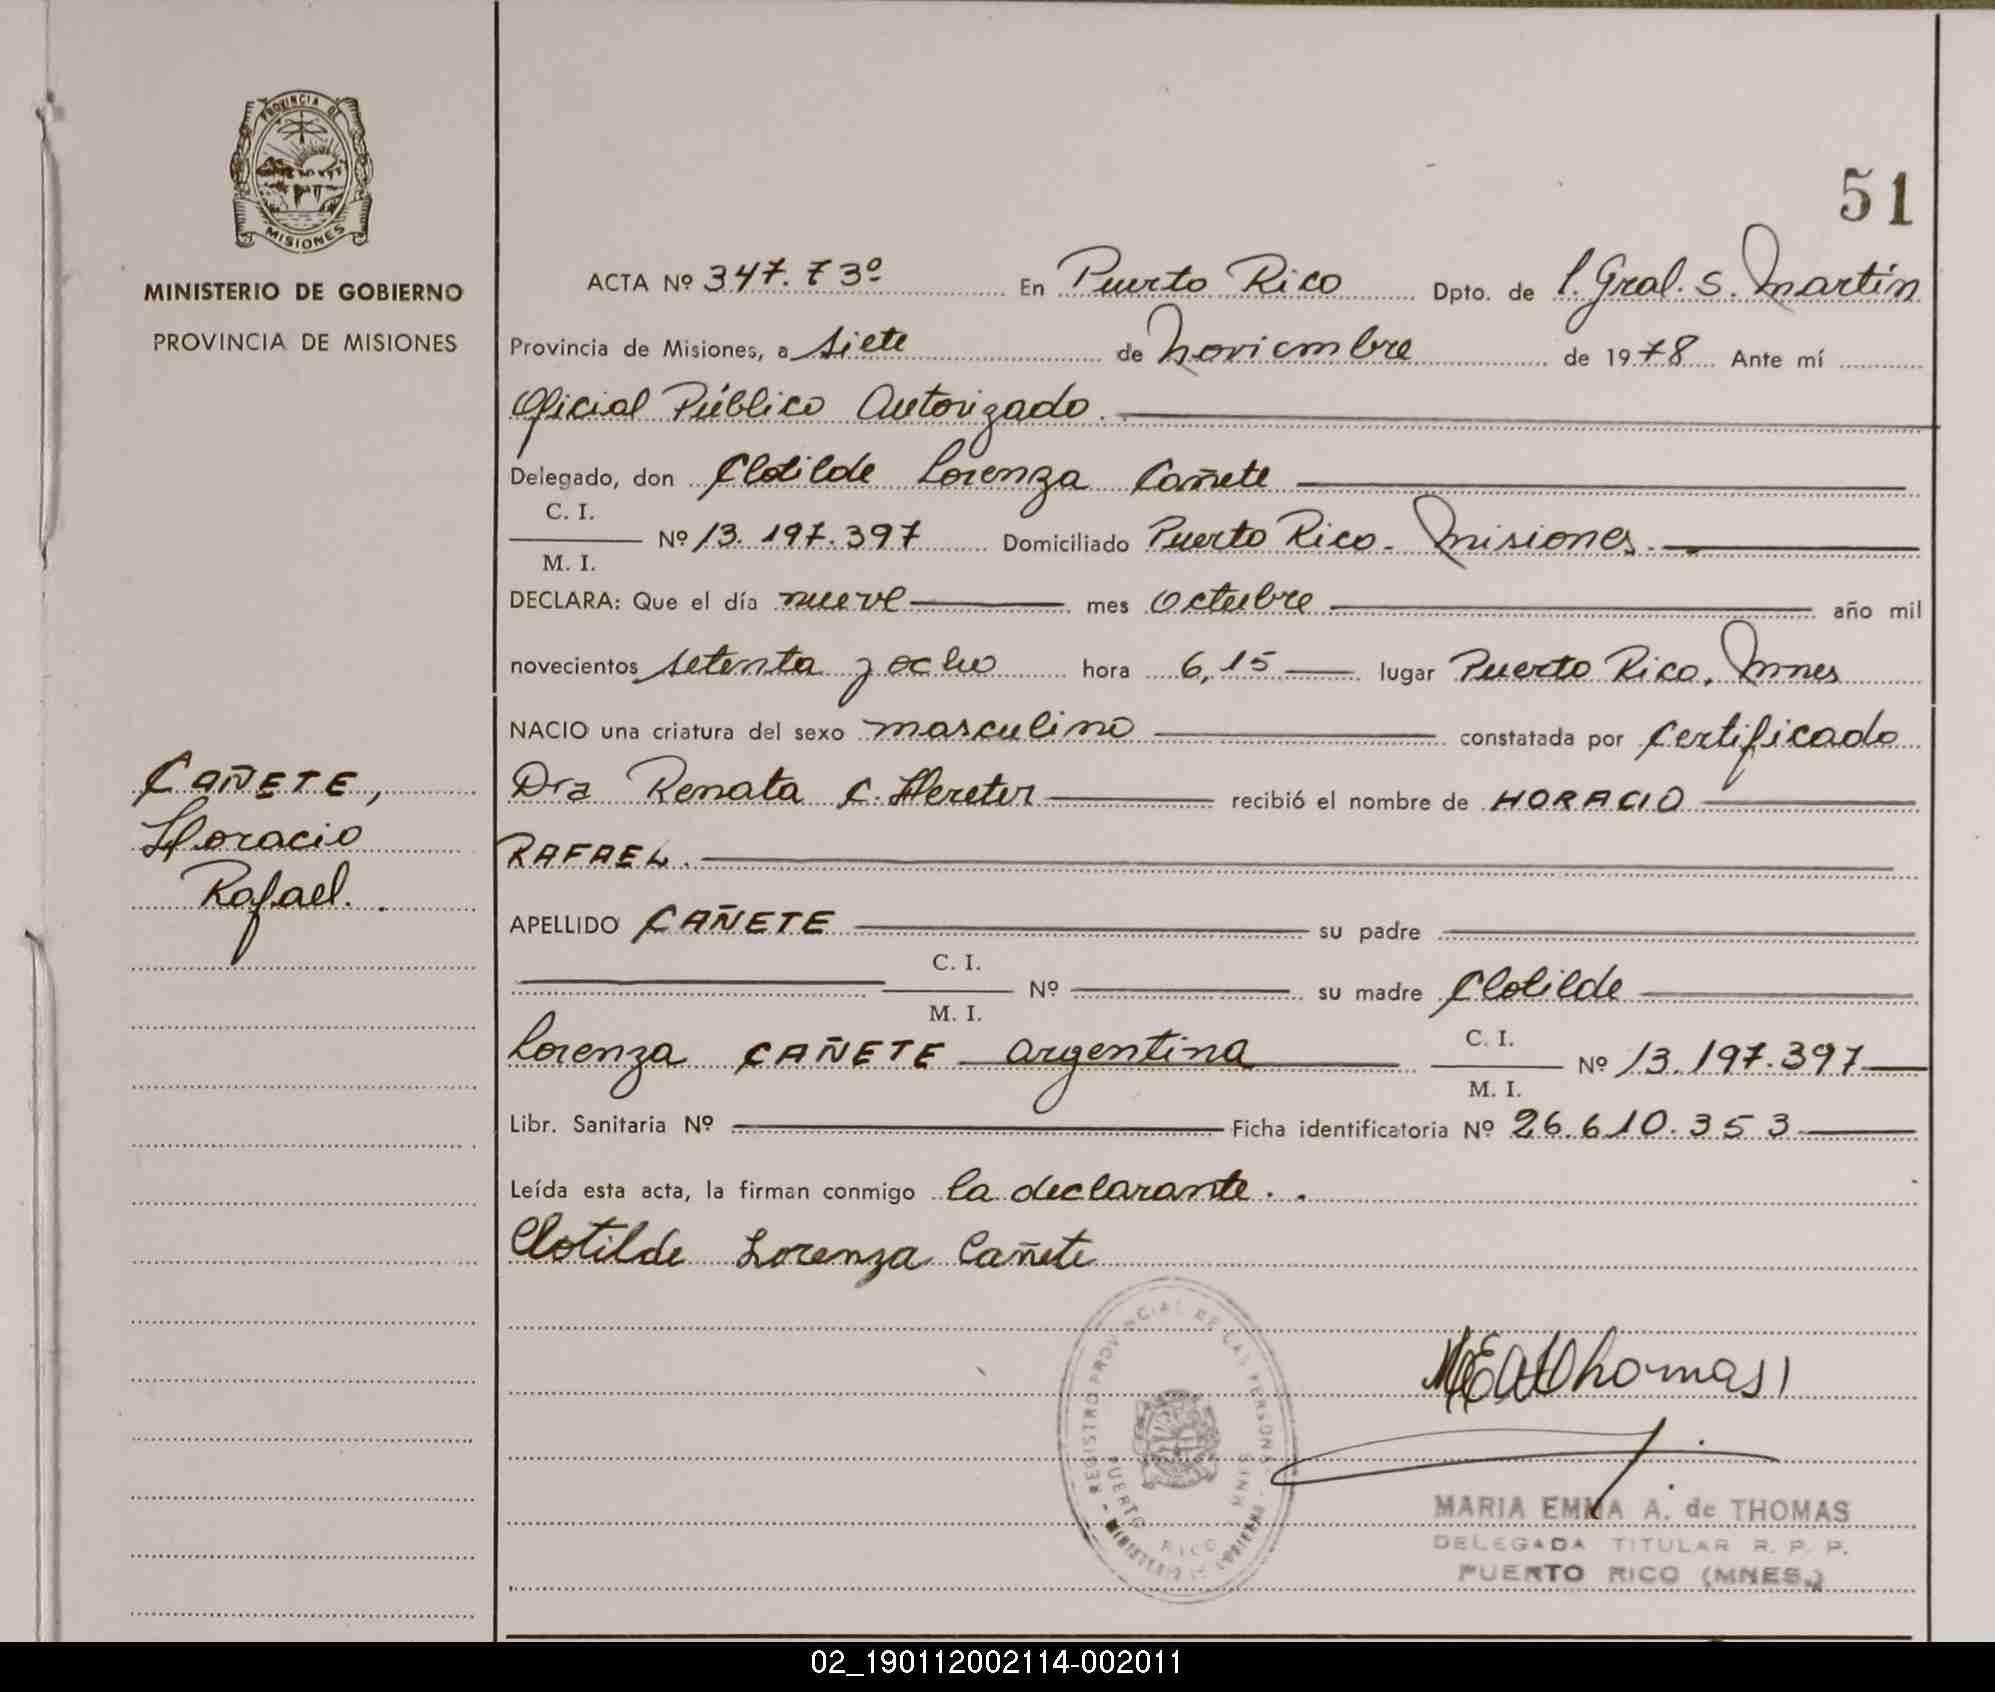 PROVINCIA DE
MISIONES
MINISTERIO DE GOBIERNO
PROVINCIA DE MISIONES
CAÑETE,
Horacio
Rafael.
51
ACTA Nº 347. T 3º En Puerto Rico Dpto. de l. Gral. S. Martín
Provincia de Misiones, a siete de noviembre de 1978 Ante mí
Oficial Público Autorizado.
Delegado, don Clotilde Lorenza Cañete
C. I.
Nº 13.197.397 Domiciliado Puerto Rico. Misiones.
M. I.
DECLARA: Que el día nueve mes Octubre año mil
novecientos setenta y ocho hora 6,15 lugar Puerto Rico. Mnes
NACIO una criatura del sexo masculino constatada por Certificado
Dra Renata C. Hereter recibió el nombre de HORACIO
RAFAEL.
APELLIDO CAÑETE su padre
C. I.
Nº su madre Clotilde
M. I.
Lorenza CAÑETE argentina C. I. Nº 13.197.397
M. I.
Libr. Sanitaria Nº Ficha identificatoria Nº 26.610.353
Leída esta acta, la firman conmigo la declarante.
Clotilde Lorenza Cañete
REGISTRO PROVINCIAL DE LAS PERSONAS
PUERTO RICO MNES
MINISTERIO DE GOBIERNO
MEAdThomas
MARIA EMMA A. de THOMAS
DELEGADA TITULAR R. P. P.
PUERTO RICO (MNES.)
02_190112002114-002011